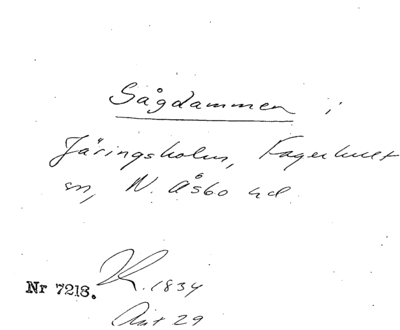 Sågdammen i
Järingsholm, Fagerhult
sn, N. Åsbo hd
Nr 7218. K. 1834
Akt 29